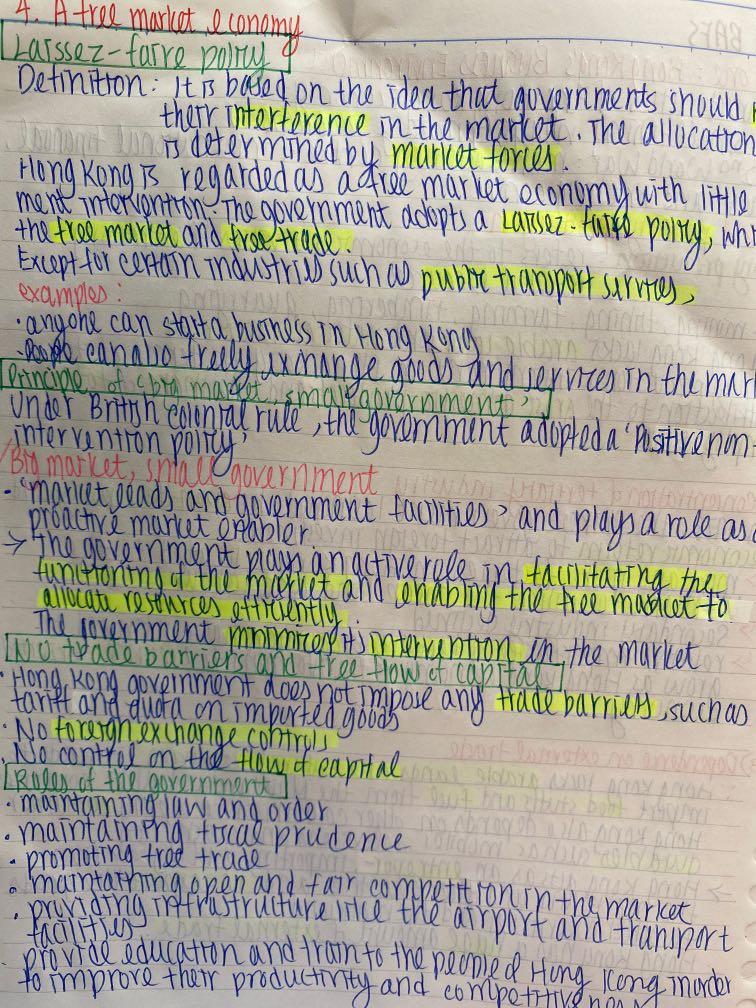 4. A free market economy
Laissez-faire policy
Definition: It is based on the idea that governments should
their interference in the market. The allocation
is determined by market forces.
Hong Kong is regarded as a free market economy with little
ment intervention. The government adopts a Laissez-faire policy, wh
the free market and free trade.
Except for certain industries such as public transport services,
examples:
· anyone can start a business in Hong Kong
· People can also freely exchange goods and services in the mar
Principle of 'big market, small government'
Under British colonial rule, the government adopted a 'Positive non-
intervention policy'
Big market, small government
· 'market leads and government facilities' and plays a role as a
proactive market enabler
→ The government plays an active role in facilitating the
functioning of the market and enabling the free market to
allocate resources efficiently.
The government minimizes its intervention in the market
No trade barriers and free flow of capital
· Hong Kong government does not impose any trade barriers, such as
tariff and quota on imported goods
· No foreign exchange controls
· No control on the flow of capital
Roles of the government
· maintaining law and order
· maintaining fiscal prudence
· promoting free trade
· maintaining open and fair competition in the market
· providing infrastructure like the airport and transport
facilities
· provide education and train to the people of Hong Kong inorder
to improve their productivity and